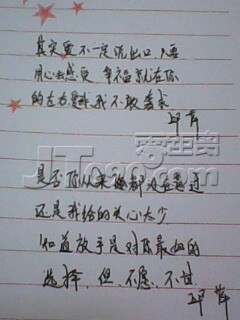 其实爱不一定说出口,只要
用心去感受 幸福就在你
的左右
我不敢奢求
邱萍
是否你从来都没在意过
还是我给的关心太少
知道放手是对你最好的
选择,但,不愿,不甘
邱萍
JT090